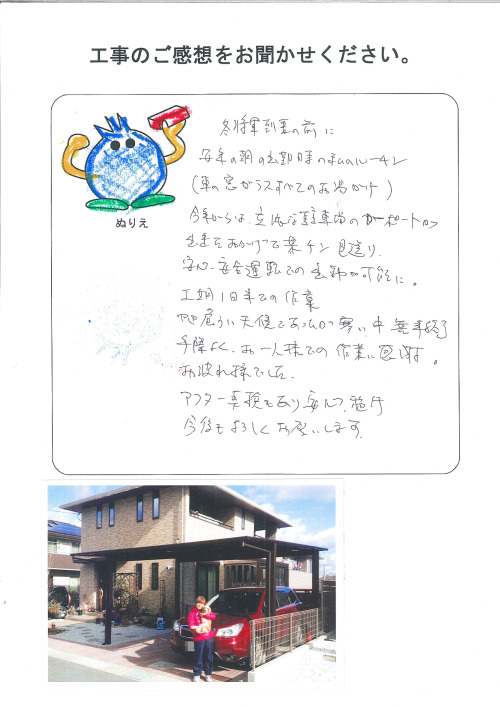 工事のご感想をお聞かせください。
ぬりえ
冬将軍到来の前に
の朝の出勤時の私のルーチン
(車の窓ガラスすべてのお湯かけ)
今年からは、立派な駐車場のカーポートが
出来たおかげで楽チン見送り。
安心、安全運転での出勤が可能に。
工期1日半での作業
天候であったり寒い中無事終了
手際よく、お一人様での作業に感謝。
お疲れ様でした。
アフター点検もあり安心
今後もよろしくお願いします。